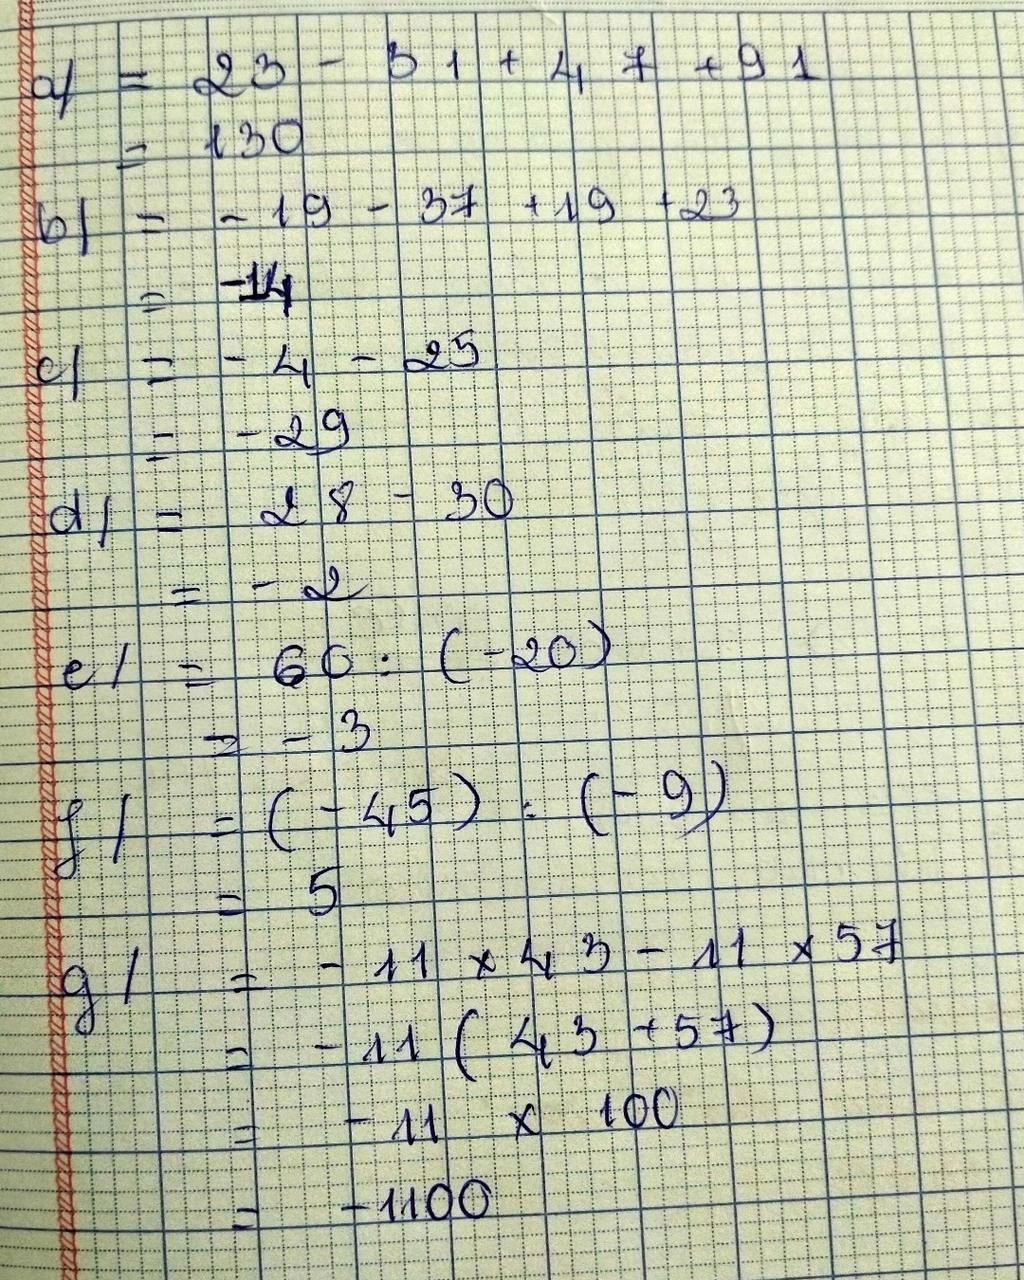 a/ = 23 - 31 + 47 + 91
= 130
b/ = - 19 - 37 + 19 + 23
= -14
c/ = - 4 - 25
= - 29
d/ = 28 - 30
= - 2
e/ = 60 : (-20)
= - 3
f/ = (-45) : (-9)
= 5
g/ = - 11 x 43 - 11 x 57
= - 11 ( 43 + 57)
= - 11 x 100
= -1100